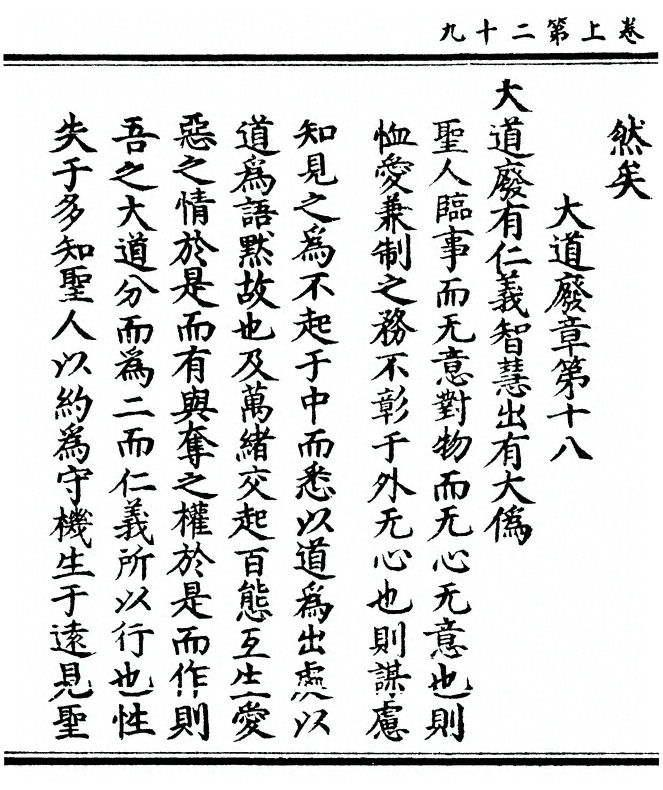 卷上第二十九
然矣
大道廢章第十八
大道廢有仁義智慧出有大僞
聖人臨事而无意對物而无心无意也則
恤愛兼制之務不彰于外无心也則謀慮
知見之爲不起于中而悉以道爲出處以
道爲語默故也及萬緒交起百態互生一愛
惡之情於是而有與奪之權於是而作則
吾之大道分而爲二而仁義所以行也性
失于多知聖人以約爲守機生于遠見聖